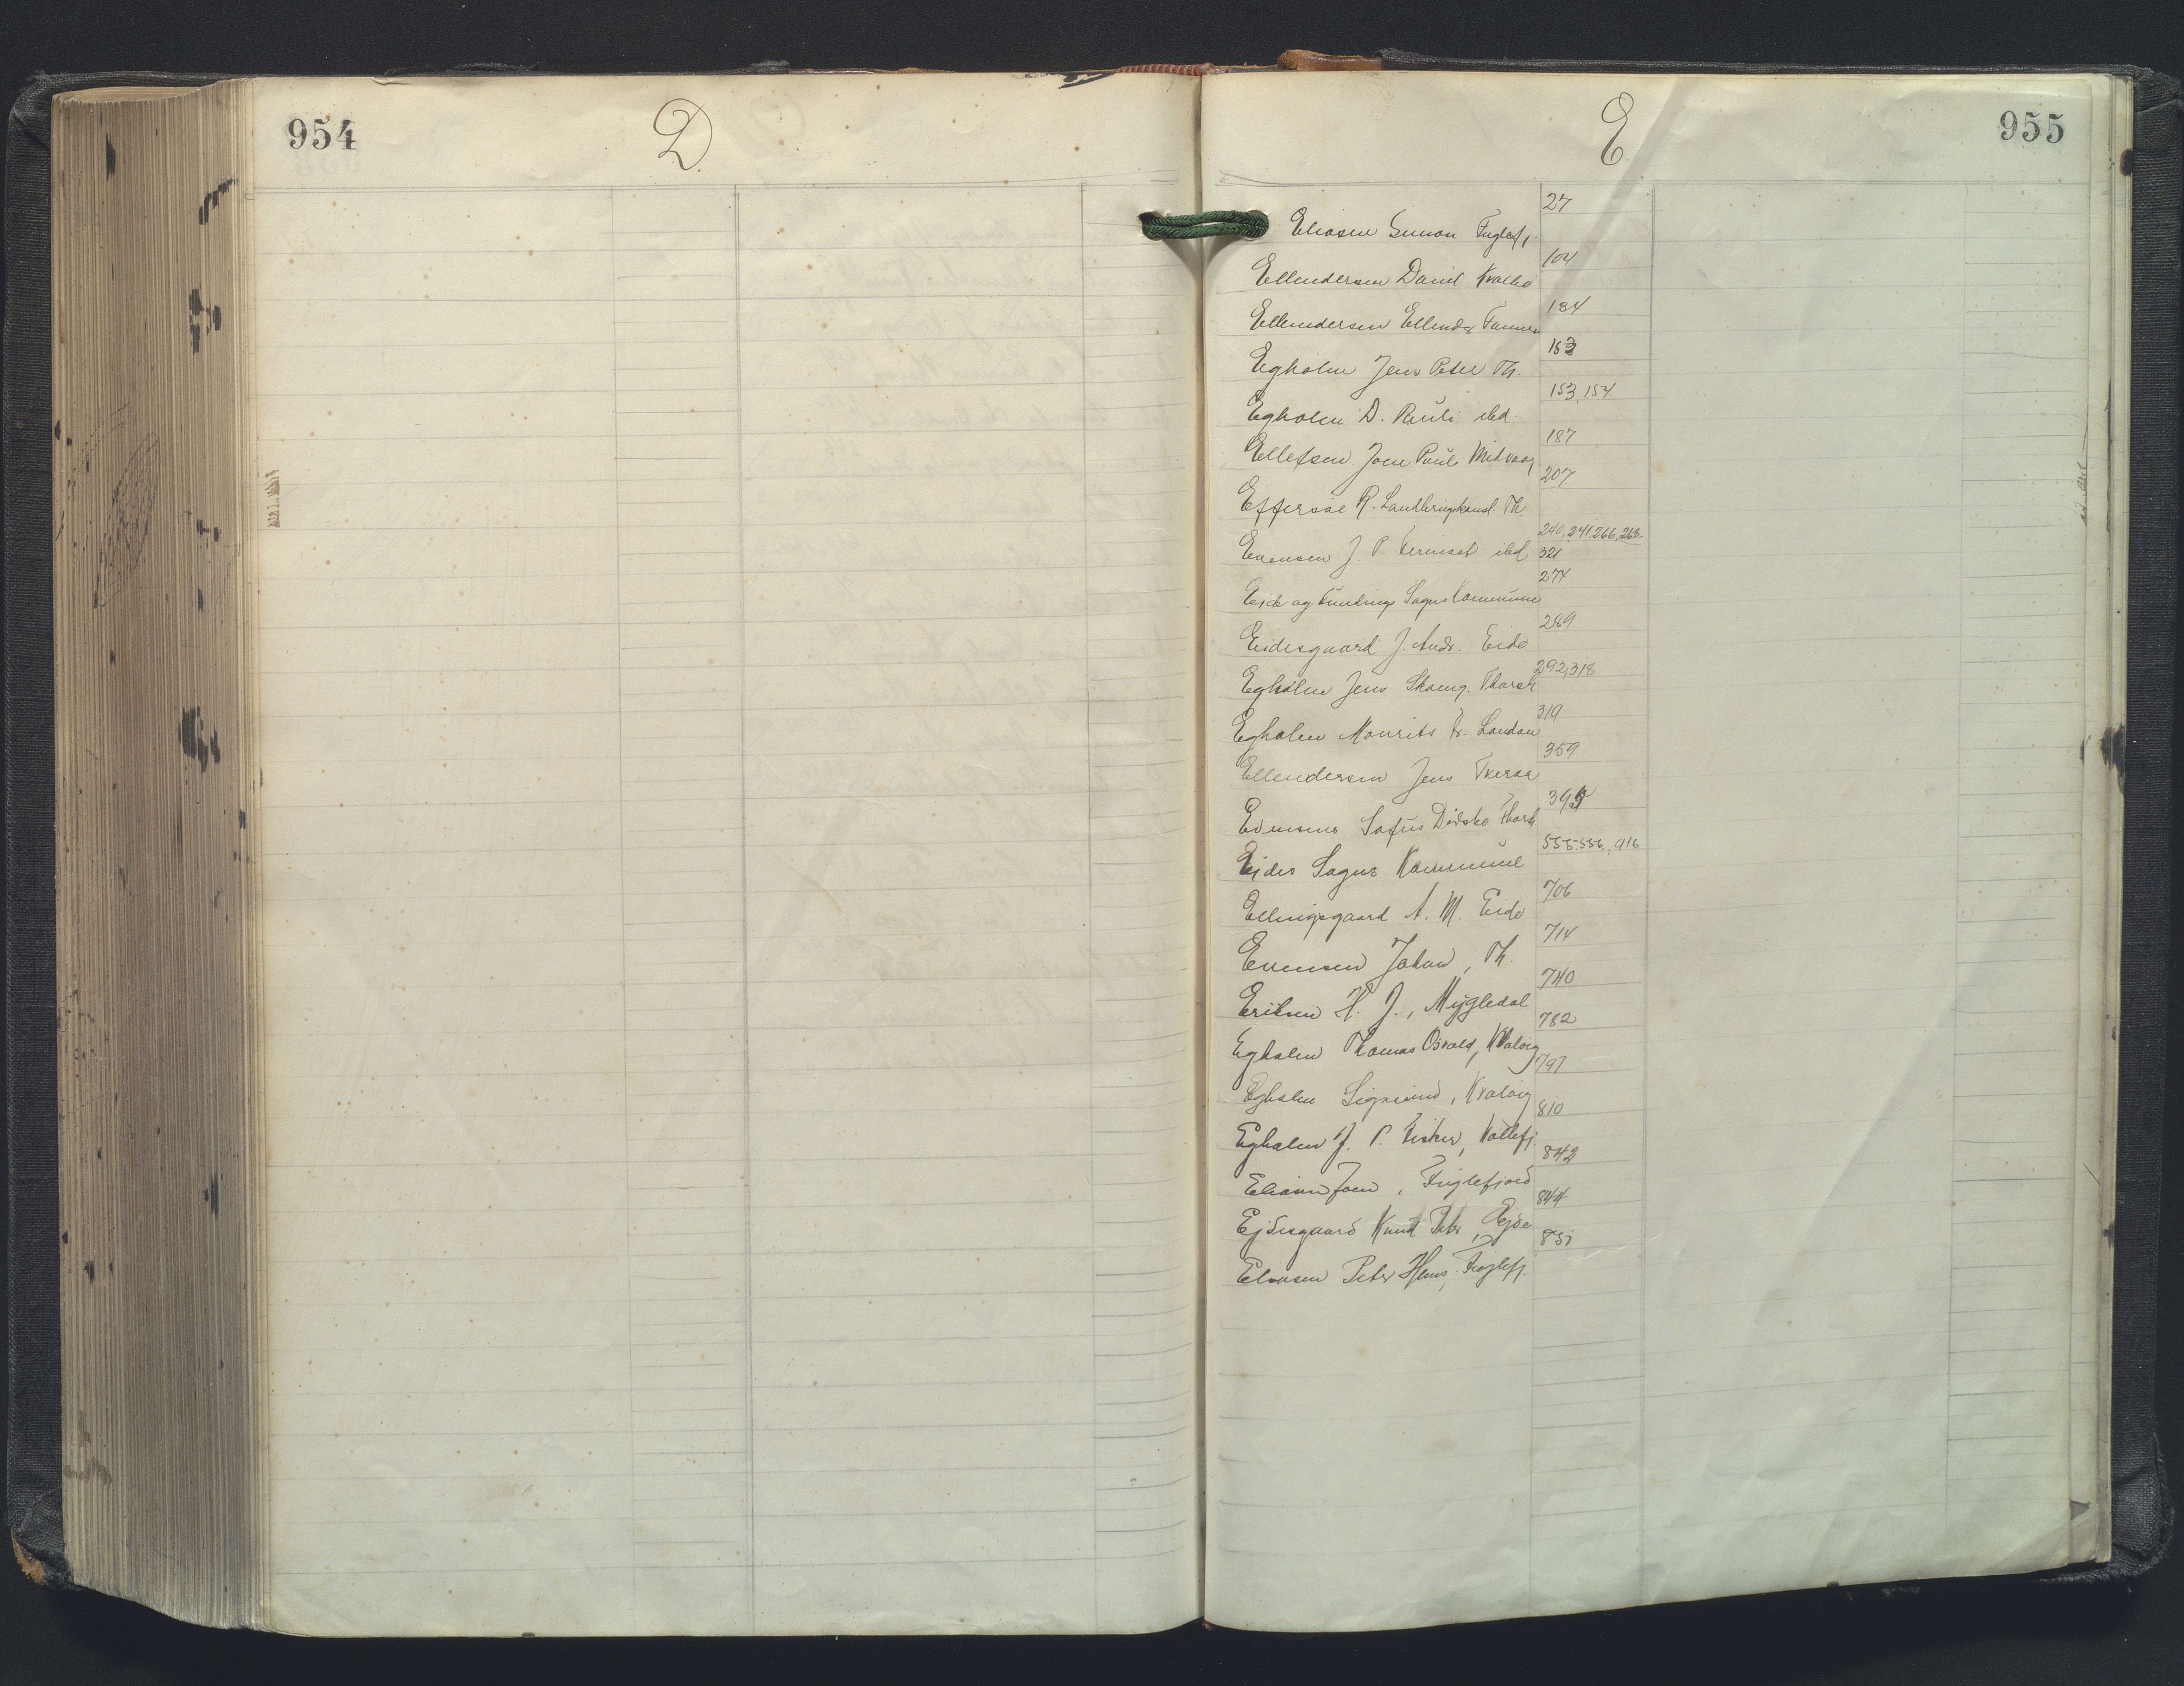 954
D.
E
955
Eliasen Simon Fuglefj. 27
Ellendersen Daniel Kvalbø 104
Ellendersen Ellend 134
Egholm Jens Peter Th. 153
Egholm D. Pauli ibd. 153, 154
Ellefsen Joen Pauli Midvaag 187
Effersøe R. Landbrugskonsl. Th. 207
240, 241. 266, 268.
Evensen J. P. ibd 321
Eide og Fundings Sogns Kommune 274
Eidesgaard J. Andr. Eide 289
Egholm Jens Thorsh 292, 318
Egholm Mourits London 319
Ellendersen Jens Tveraa 359
Evensens Sofus Dødsbo Thorsh 395
Ejdes Sogns Kommune 555. 556, 916
Ellingsgaard A. M. Eide 706
Evensen Johan, Th. 714
Eriksen H. J., Mygledal 740
Egholm Thomas Osvald, Kvalvig 782
Egholm Sigmund, Kvalvig 797
Egholm J. P. Fisker, Kollefj. 810
Eliasen Joen, Fuglefjord 842
Ejdesgaard Knud Peter, Ejde 844
Eliasen Peter Hans, Fuglefj. 851